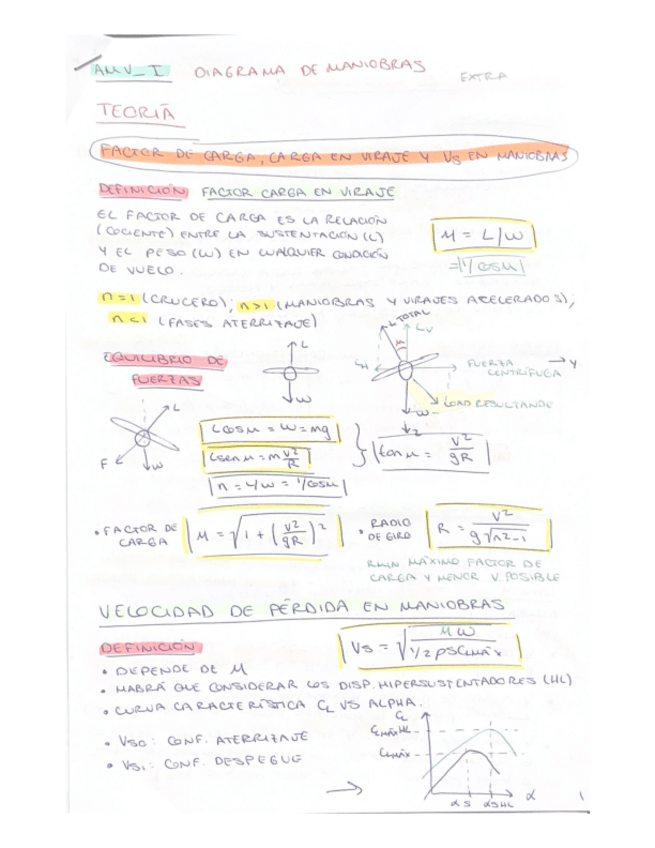 AMV_I DIAGRAMA DE MANIOBRAS EXTRA
TEORÍA
FACTOR DE CARGA, CARGA EN VIRAJE Y Vs EN MANIOBRAS
DEFINICIÓN FACTOR CARGA EN VIRAJE
EL FACTOR DE CARGA ES LA RELACIÓN
(COCIENTE) ENTRE LA SUSTENTACIÓN (L)
Y EL PESO (W) EN CUALQUIER CONDICIÓN
DE VUELO.
n = L/W
= 1/cosμ
n=1 (CRUCERO); n>1 (MANIOBRAS Y VIRAJES ACELERADOS);
n<1 (FASES ATERRIZAJE)
EQUILIBRIO DE
FUERZAS
L
W
L TOTAL
Lv
μ
LH
FUERZA
CENTRÍFUGA
Y
LOAD RESULTANDE
W
Z
L
F
W
Lcosμ = W = mg
Lsenμ = m V²/R
n = L/W = 1/cosμ
tanμ = V²/gR
• FACTOR DE
CARGA
n = √1 + (V²/gR)²
• RADIO
DE GIRO
R = V²/g√n²-1
RMIN MÁXIMO FACTOR DE
CARGA Y MENOR V. POSIBLE
VELOCIDAD DE PÉRDIDA EN MANIOBRAS
DEFINICIÓN
Vs = √nW/1/2 ρSCLmáx
• DEPENDE DE n
• HABRÁ QUE CONSIDERAR LOS DISP. HIPERSUSTENTADORES (HL)
• CURVA CARACTERÍSTICA CL VS ALPHA.
• Vs0: CONF. ATERRIZAJE
• Vs1: CONF. DESPEGUE
CL
CLmáxHL
CLmáx
αs αsHL α
1